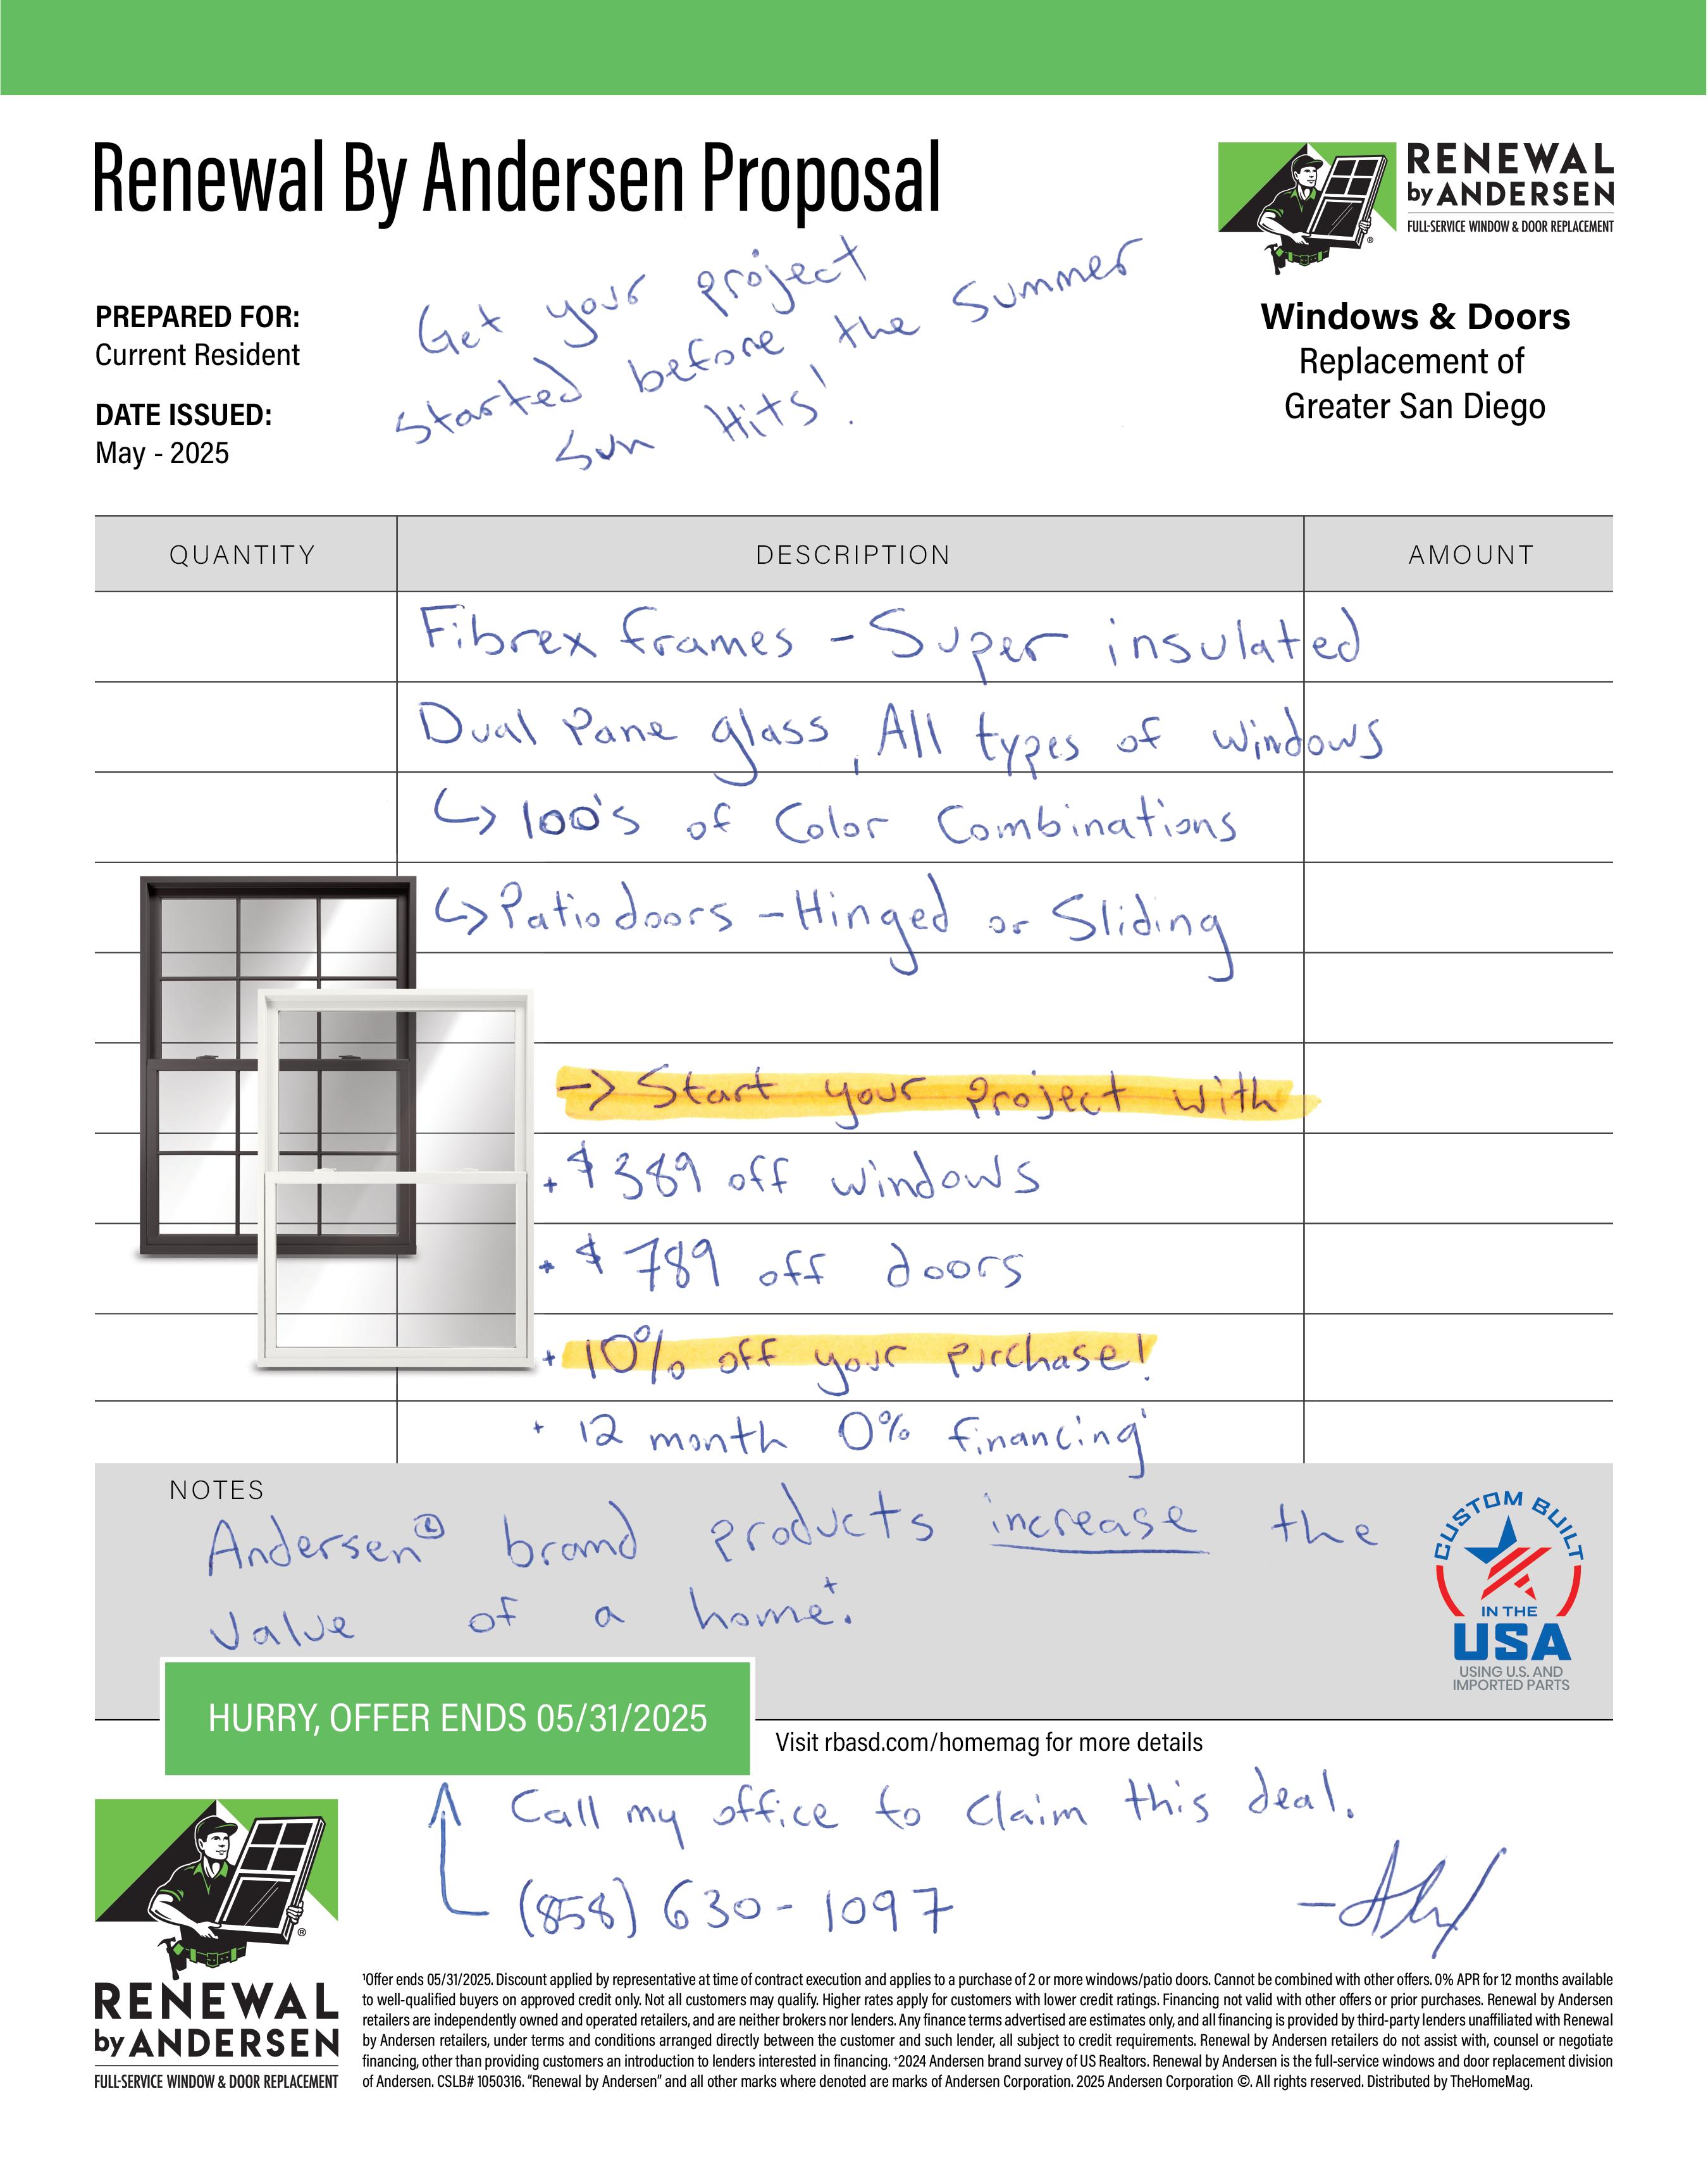 Renewal By Andersen Proposal
RENEWAL
by ANDERSEN
FULL-SERVICE WINDOW & DOOR REPLACEMENT
®
Get your project
started before the Summer
Sun Hits!
PREPARED FOR:
Current Resident
DATE ISSUED:
May - 2025
Windows & Doors
Replacement of
Greater San Diego
QUANTITY DESCRIPTION AMOUNT
Fibrex frames - Super insulated
Dual Pane glass, All types of windows
↳ 100's of Color Combinations
↳ Patio doors - Hinged or Sliding
-> Start your project with
+ $389 off windows
+ $789 off doors
+ 10% off your purchase!
+ 12 month 0% financing¹
NOTES
Andersen® brand products increase the
value of a home⁺.
CUSTOM BUILT
IN THE
USA
USING U.S. AND
IMPORTED PARTS
HURRY, OFFER ENDS 05/31/2025
Visit rbasd.com/homemag for more details
Call my office to claim this deal.
(858) 630-1097
®
RENEWAL
by ANDERSEN
FULL-SERVICE WINDOW & DOOR REPLACEMENT
¹Offer ends 05/31/2025. Discount applied by representative at time of contract execution and applies to a purchase of 2 or more windows/patio doors. Cannot be combined with other offers. 0% APR for 12 months available
to well-qualified buyers on approved credit only. Not all customers may qualify. Higher rates apply for customers with lower credit ratings. Financing not valid with other offers or prior purchases. Renewal by Andersen
retailers are independently owned and operated retailers, and are neither brokers nor lenders. Any finance terms advertised are estimates only, and all financing is provided by third-party lenders unaffiliated with Renewal
by Andersen retailers, under terms and conditions arranged directly between the customer and such lender, all subject to credit requirements. Renewal by Andersen retailers do not assist with, counsel or negotiate
financing, other than providing customers an introduction to lenders interested in financing. ⁺2024 Andersen brand survey of US Realtors. Renewal by Andersen is the full-service windows and door replacement division
of Andersen. CSLB# 1050316. “Renewal by Andersen” and all other marks where denoted are marks of Andersen Corporation. 2025 Andersen Corporation ©. All rights reserved. Distributed by TheHomeMag.